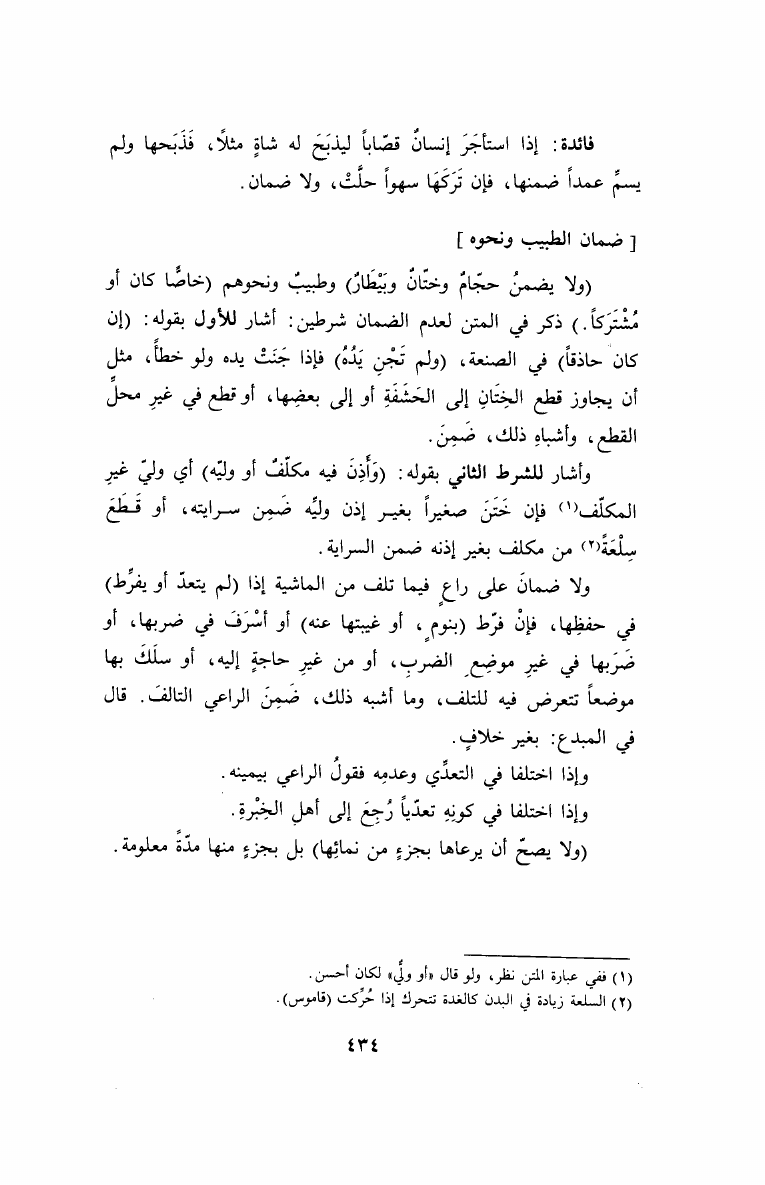 فائدة: إذا استأجَرَ إنسانٌ قصّاباً ليذبَحَ له شاةٍ مثلاً، فَذَبَحها ولم
يسمِّ عمداً ضمنها، فإن تَرَكَهَا سهواً حلَّتْ، ولا ضمان.
[ ضمان الطبيب ونحوه ]
(ولا يضمنُ حجّامٌ وختّانٌ وبَيْطَارٌ) وطبيبٌ ونحوهم (خاصًّا كان أو
مُشْتَرَكاً.) ذكر في المتن لعدم الضمان شرطين: أشار للأول بقوله: (إن
كان حاذقاً) في الصنعة، (ولم تَجْنِ يَدُهُ) فإذا جَنَتْ يده ولو خطأً، مثل
أن يجاوز قطع الخِتَانِ إلى الحَشَفَةِ أو إلى بعضِها، أو قطع في غيرِ محلِّ
القطع، وأشباهِ ذلك، ضَمِنَ.
وأشار للشرط الثاني بقوله: (وَأَذِنَ فيه مكلّفٌ أو وليّه) أي وليّ غيرِ
المكلّف(١) فإن خَتَنَ صغيراً بغير إذن وليِّه ضَمِن سرايته، أو قَطَعَ
سِلْعَةً(٢) من مكلف بغير إذنه ضمن السراية.
ولا ضمانَ على راعٍ فيما تلف من الماشية إذا (لم يتعدّ أو يفرِّط)
في حفظِها، فإنْ فرّط (بنومٍ، أو غيبتها عنه) أو أسْرَفَ في ضربها، أو
ضَرَبها في غيرِ موضِعِ الضربِ، أو من غيرِ حاجةٍ إليه، أو سلَكَ بها
موضعاً تتعرض فيه للتلف، وما أشبه ذلك، ضَمِنَ الراعي التالفَ. قال
في المبدع: بغير خلافٍ.
وإذا اختلفا في التعدِّي وعدمِه فقولُ الراعي بيمينه.
وإذا اختلفا في كونِهِ تعدّياً رُجِعَ إلى أهلِ الخِبْرةِ.
(ولا يصحّ أن يرعاها بجزءٍ من نمائِها) بل بجزءٍ منها مدّةً معلومة.
(١) ففي عبارة المتن نظر، ولو قال «أو وليٌّ» لكان أحسن.
(٢) السلعة زيادة في البدن كالغدة تتحرك إذا حُرِّكت (قاموس).
٤٣٤